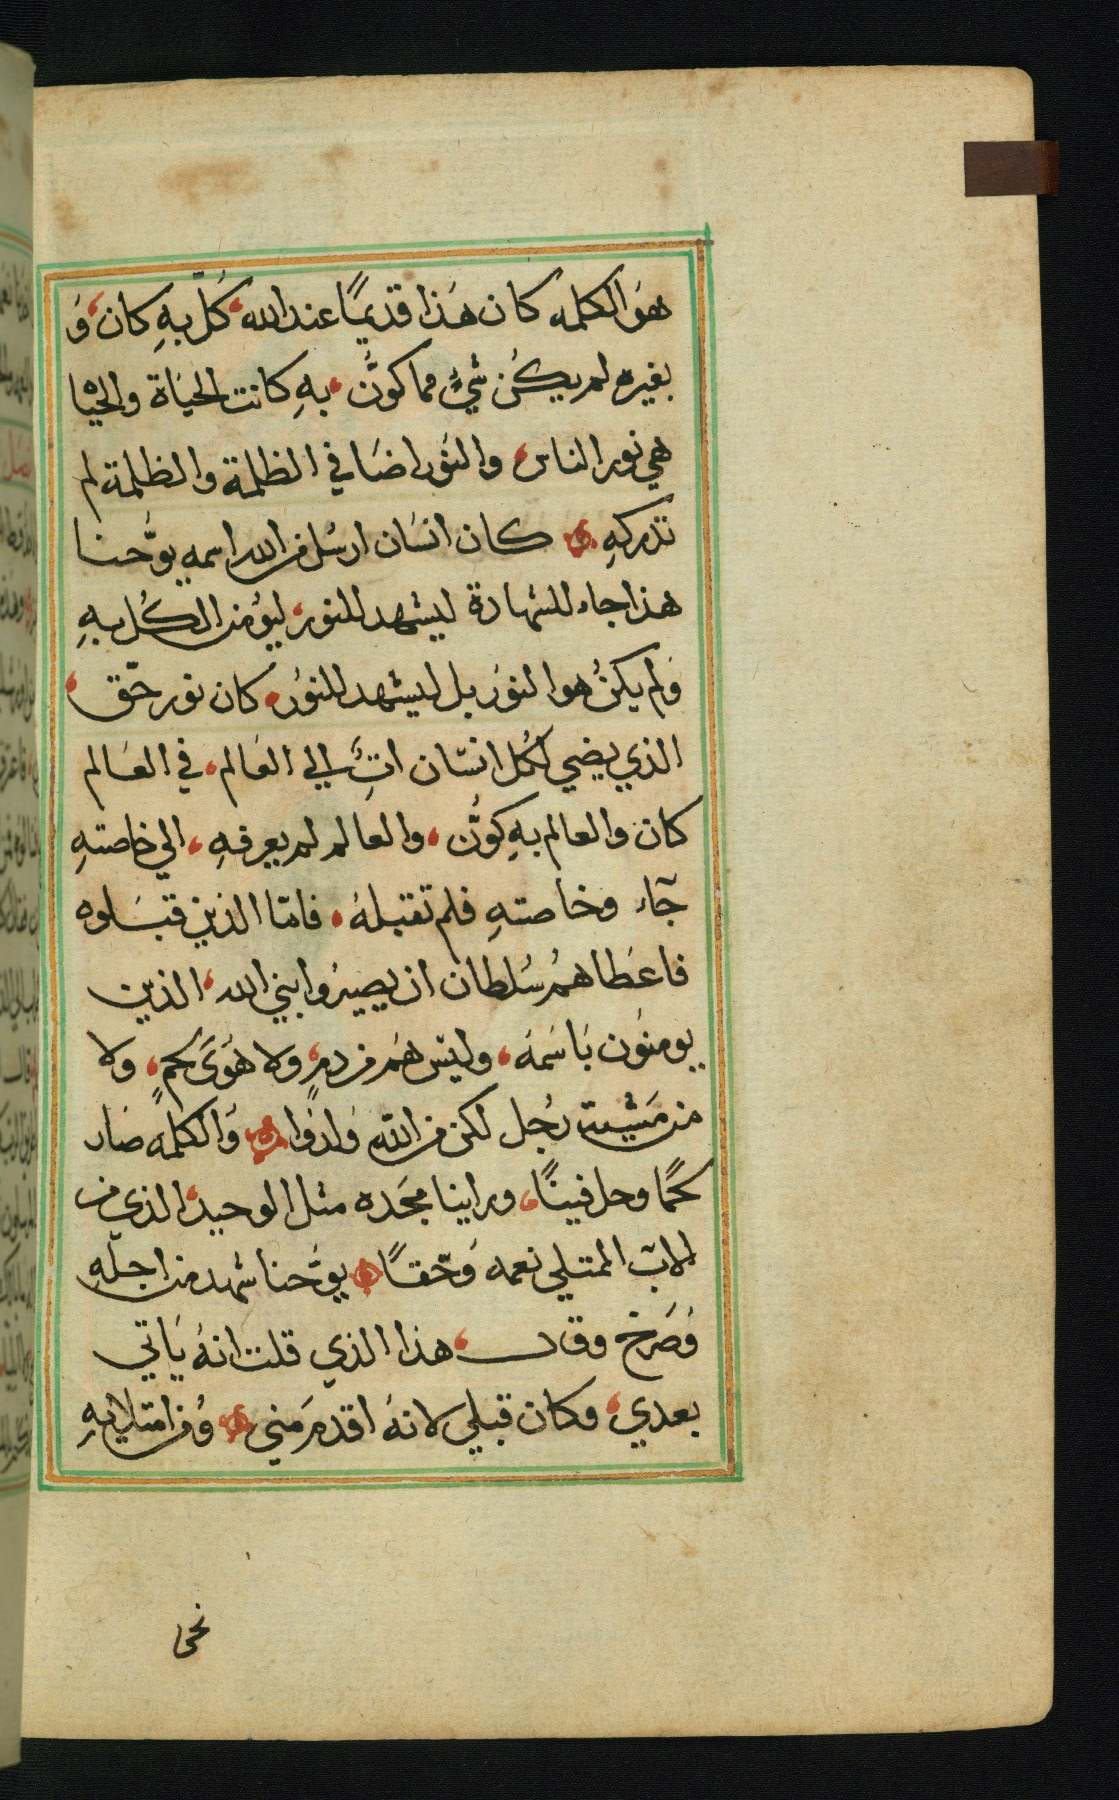 هوَ الكلمه كان هَذا قديمًا عند الله، كُلّ بهِ كان، وَ
بغيره لم يكُن شيءٌ مما كوُّن، بهِ كانت الحيَاة والحيٰا
هي نور الناس، والنوُر اضَا في الظلمة والظلمة لم
تدركهِ كان انسَان ارسُل من الله اسمه يوُّحنا
هذا جاء للشهادة ليشهد للنور، ليوُمن الكُل بهِ
وَلم يكنُ هوا لنوُر بل ليشهد للنوُر، كان نور حّق،
الذي يضي لكُل انسَان اتٍ الي العَالم، في العَالم
كان والعالم بهِ كوُّن، والعالم لم يعرفهِ، الي خاصتهِ
جآء وخاصتهِ فلم تقبلهُ، فامّا الذين قبَلوه
فاعَطاهمُ سُلطان ان يصيرُوا بني الله، الذين
يومنوُن باسَمه، وليَس هَم من دمٍ، ولا هَوَى لحمٍ، ولا
من مَشيت رجُل لكن من اللّه وُلدوُا وَالكلمه صَار
لحمًا وحل فينًا، وراينا مجَده مثل الوحيد، الذي من
الاب الممتلي نعمه وَحّقًا يوُّحنا شهد من اجلهِ
وَصَرخ وقال، هذا الذي قلت انهُ يَاتي
بعدي، وكان قبلي لانهُ اقدمَ مني وُمن امتلايهِ
نحن